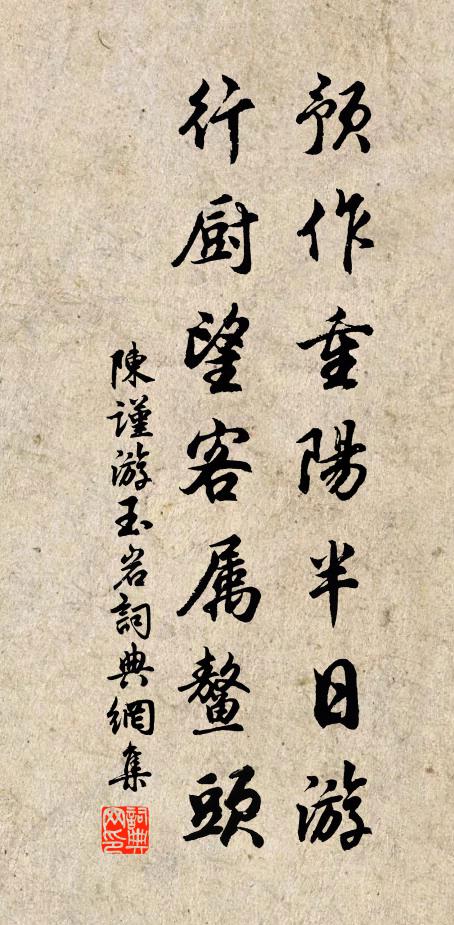 預作重陽半日游
行厨望客属鰲頭
陳謹游玉岩詞典網集
詞典網印